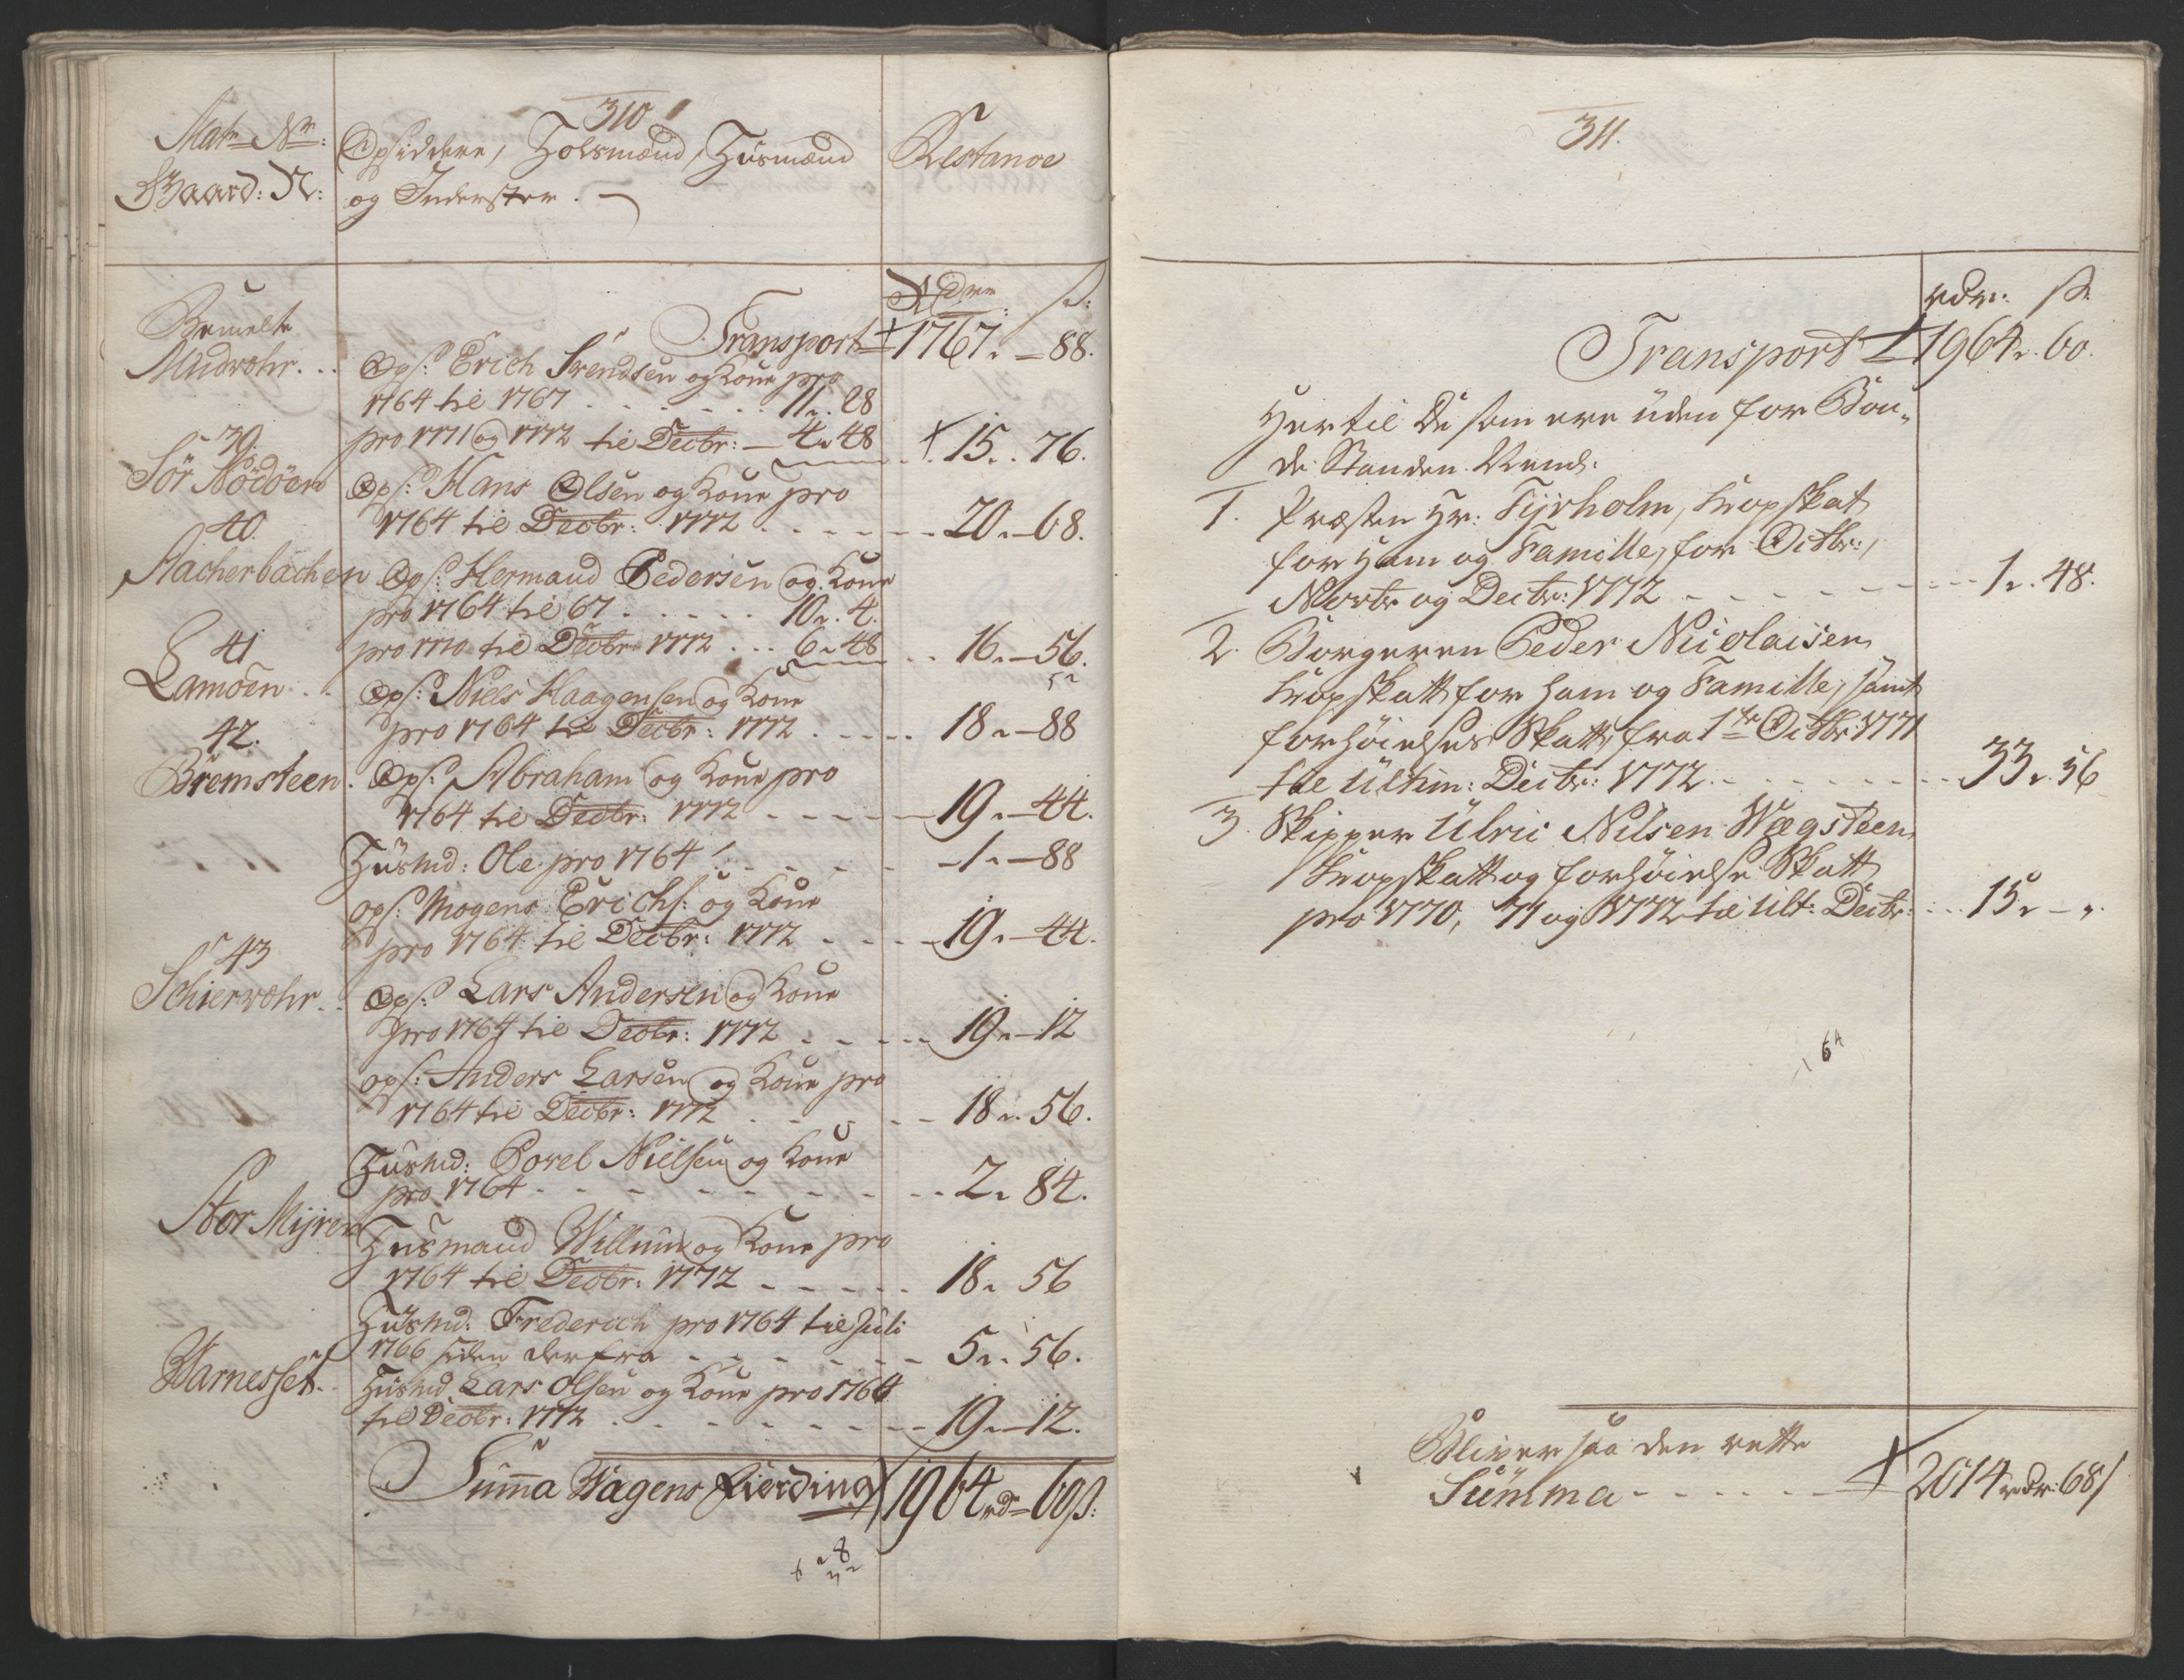 310
Matr Nr:
Gaard: N:
Opsiddere, Holsmænd, Huusmænd
og Inderster. —
Restance
Rdr ß:
Transport 1767. – 88.
Bemelte
Mudwohr..
Ops: Erich Svendsen og Kone pro
1764 til 1767 . . . . . . . 11. 28
pro 1771 og 1772 til Decbr: — 4. 48 15. 76.
39.
Sör Nödöen
Ops: Hans Olsen og Kone pro
1764 til Decbr: 1772 . . . . . 20. – 68.
40.
Aacherbachen
Ops: Hermand Pedersen og Kone
pro 1764 til 67 . . . . . 10. 4.
pro 1770 til Decbr 1772 . . . 6. 48 16. – 56.
41
Lamoen . .
Ops: Niels Haagensen og Kone
pro 1764 til Decbr: 1772 . . . . . 18. – 88
42.
Bremsteen.
Ops: Abraham og Kone pro
1764 til Decbr: 1772 - - - - - 19. – 44.
Huusmd: Ole pro 1764 - - - - - 1. – 88
Ops: Mogens Erichs: og Kone
pro 1764 til Decbr: 1772 - - - - 19. – 44.
43
Schierwohr . .
Ops: Lars Andersen og Kone
pro 1764 til Decbr: 1772 - - - - - 19. – 12
Ops: Anders Larsen og Kone pro
1764 til Decbr: 1772 - - - - 18. 56.
Huusmd: Povel Nielsen og Kone
pro 1764 - - - - - - - - - 2. 84.
Stor Mijren
Huusmand Willum og Kone pro
1764 til Decbr: 1772 - - - - - 18. 56
Huusmd: Frederich pro 1764 til Juli
1766 siden derfra - - - - - - 5. 56.
Warnesset.
Huusmd Lars Olsen og Kone pro 1764
til Decbr: 1772 . - - - - - - - 19. – 12.
Summa Wagens Fierding 1964 rd – 60 ß:
311.
rdr. ß.
Transport 1964. 60.
Hertil De som ere uden for Bon-
de Standen Neml:
1. Præsten Hr: Fyrholm, Kopskat
for Ham og Famille, for Octbr:,
Novbr og Decbr: 1772 - - - - - - - - 1. 48.
2. Borgeren Peder Nicolaisen
Kopskatt for ham og Famille, samt
forhöielses Skatt, fra 1te Octbr 1771
til Ultim: Decbr: 1772 - - - - - - - - 33. 56
3. Skipper Ulric Nilsen Wægsteen
Kopskatt og forhöielse Skatt
pro 1770, 71 og 1772 til Ult: Decbr: . . . 15. – ".
64
Bliver saa den rette
Summa - - - - - - 2014 rdr: 68 ß